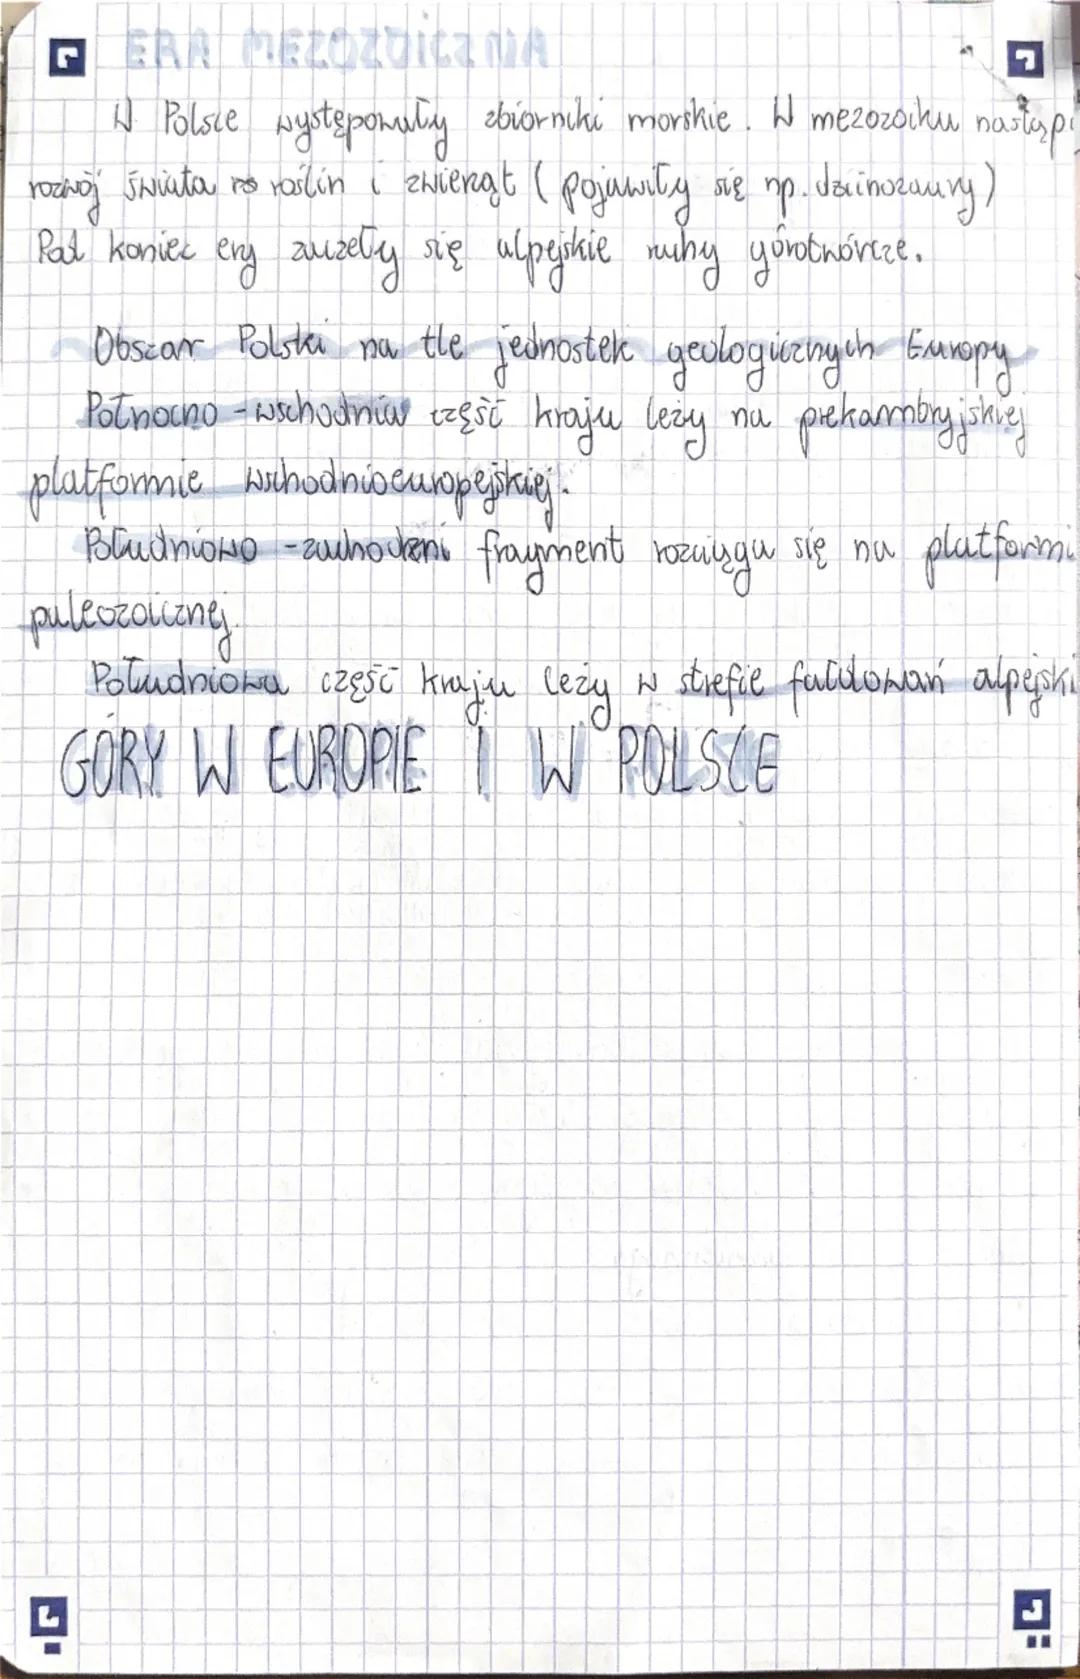 ERA MEZOZOICZNA
W Polsce występowały zbiorniki morskie. W mezozoiku nastąpi
rozwój świata ro roślin i zwierząt (pojawiły się np. dziinozaury)
Pod koniec ery zaczęły się alpejskie ruhy górotwórcze.
Obszar Polski na tle jednostek geologicznych Europy
Północno-wschodnia część kraju leży na prekambryjskiej
platformie wschodnioeuropejskiej.
Południowo-zachodzni fragment rozciąga się na platformi
paleozoicznej.
Południowa część kraju leży w strefie fałdowań alpejski
GÓRY W EUROPIE I W POLSCE